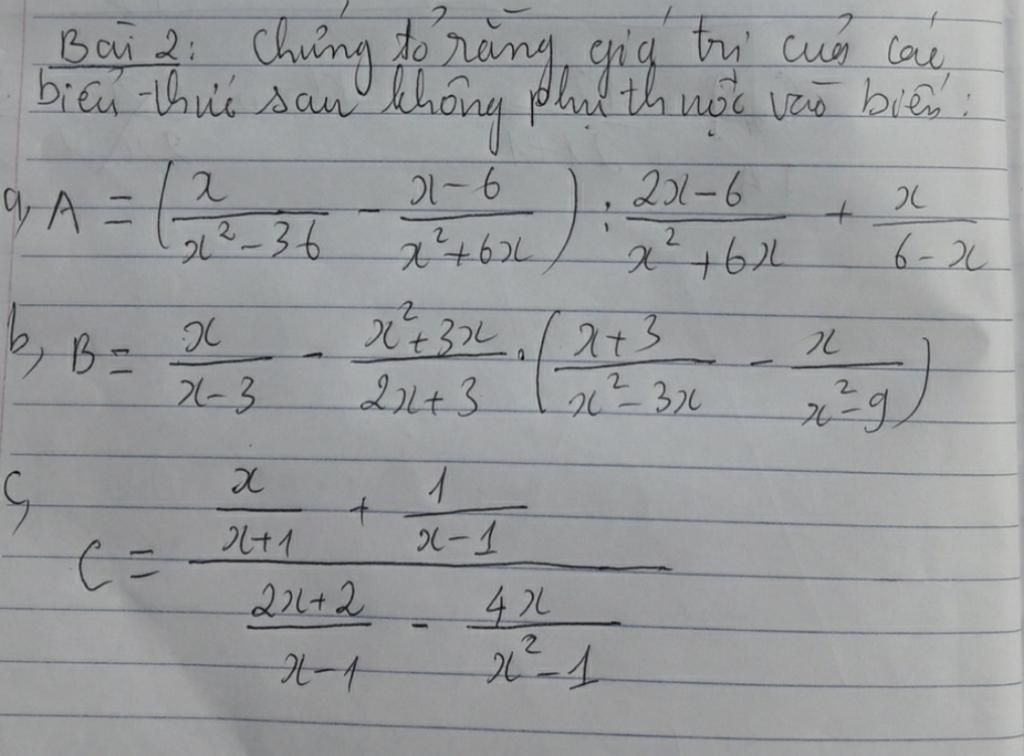 Bài 2: Chứng tỏ rằng giá trị của các
biểu thức sau không phụ thuộc vào biến:
a, A = (x/(x²-36) - (x-6)/(x²+6x)) : (2x-6)/(x²+6x) + x/(6-x)
b, B = x/(x-3) - (x²+3x)/(2x+3) . ((x+3)/(x²-3x) - x/(x²-9))
c, C = (x/(x+1) + 1/(x-1))/((2x+2)/(x-1) - 4x/(x²-1))